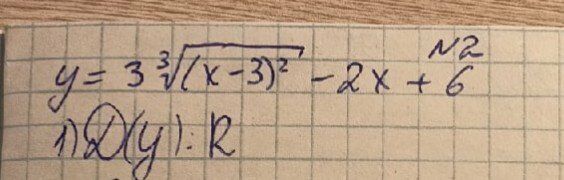 N2
y = 3∛(x-3)² - 2x + 6
1) D(y): R